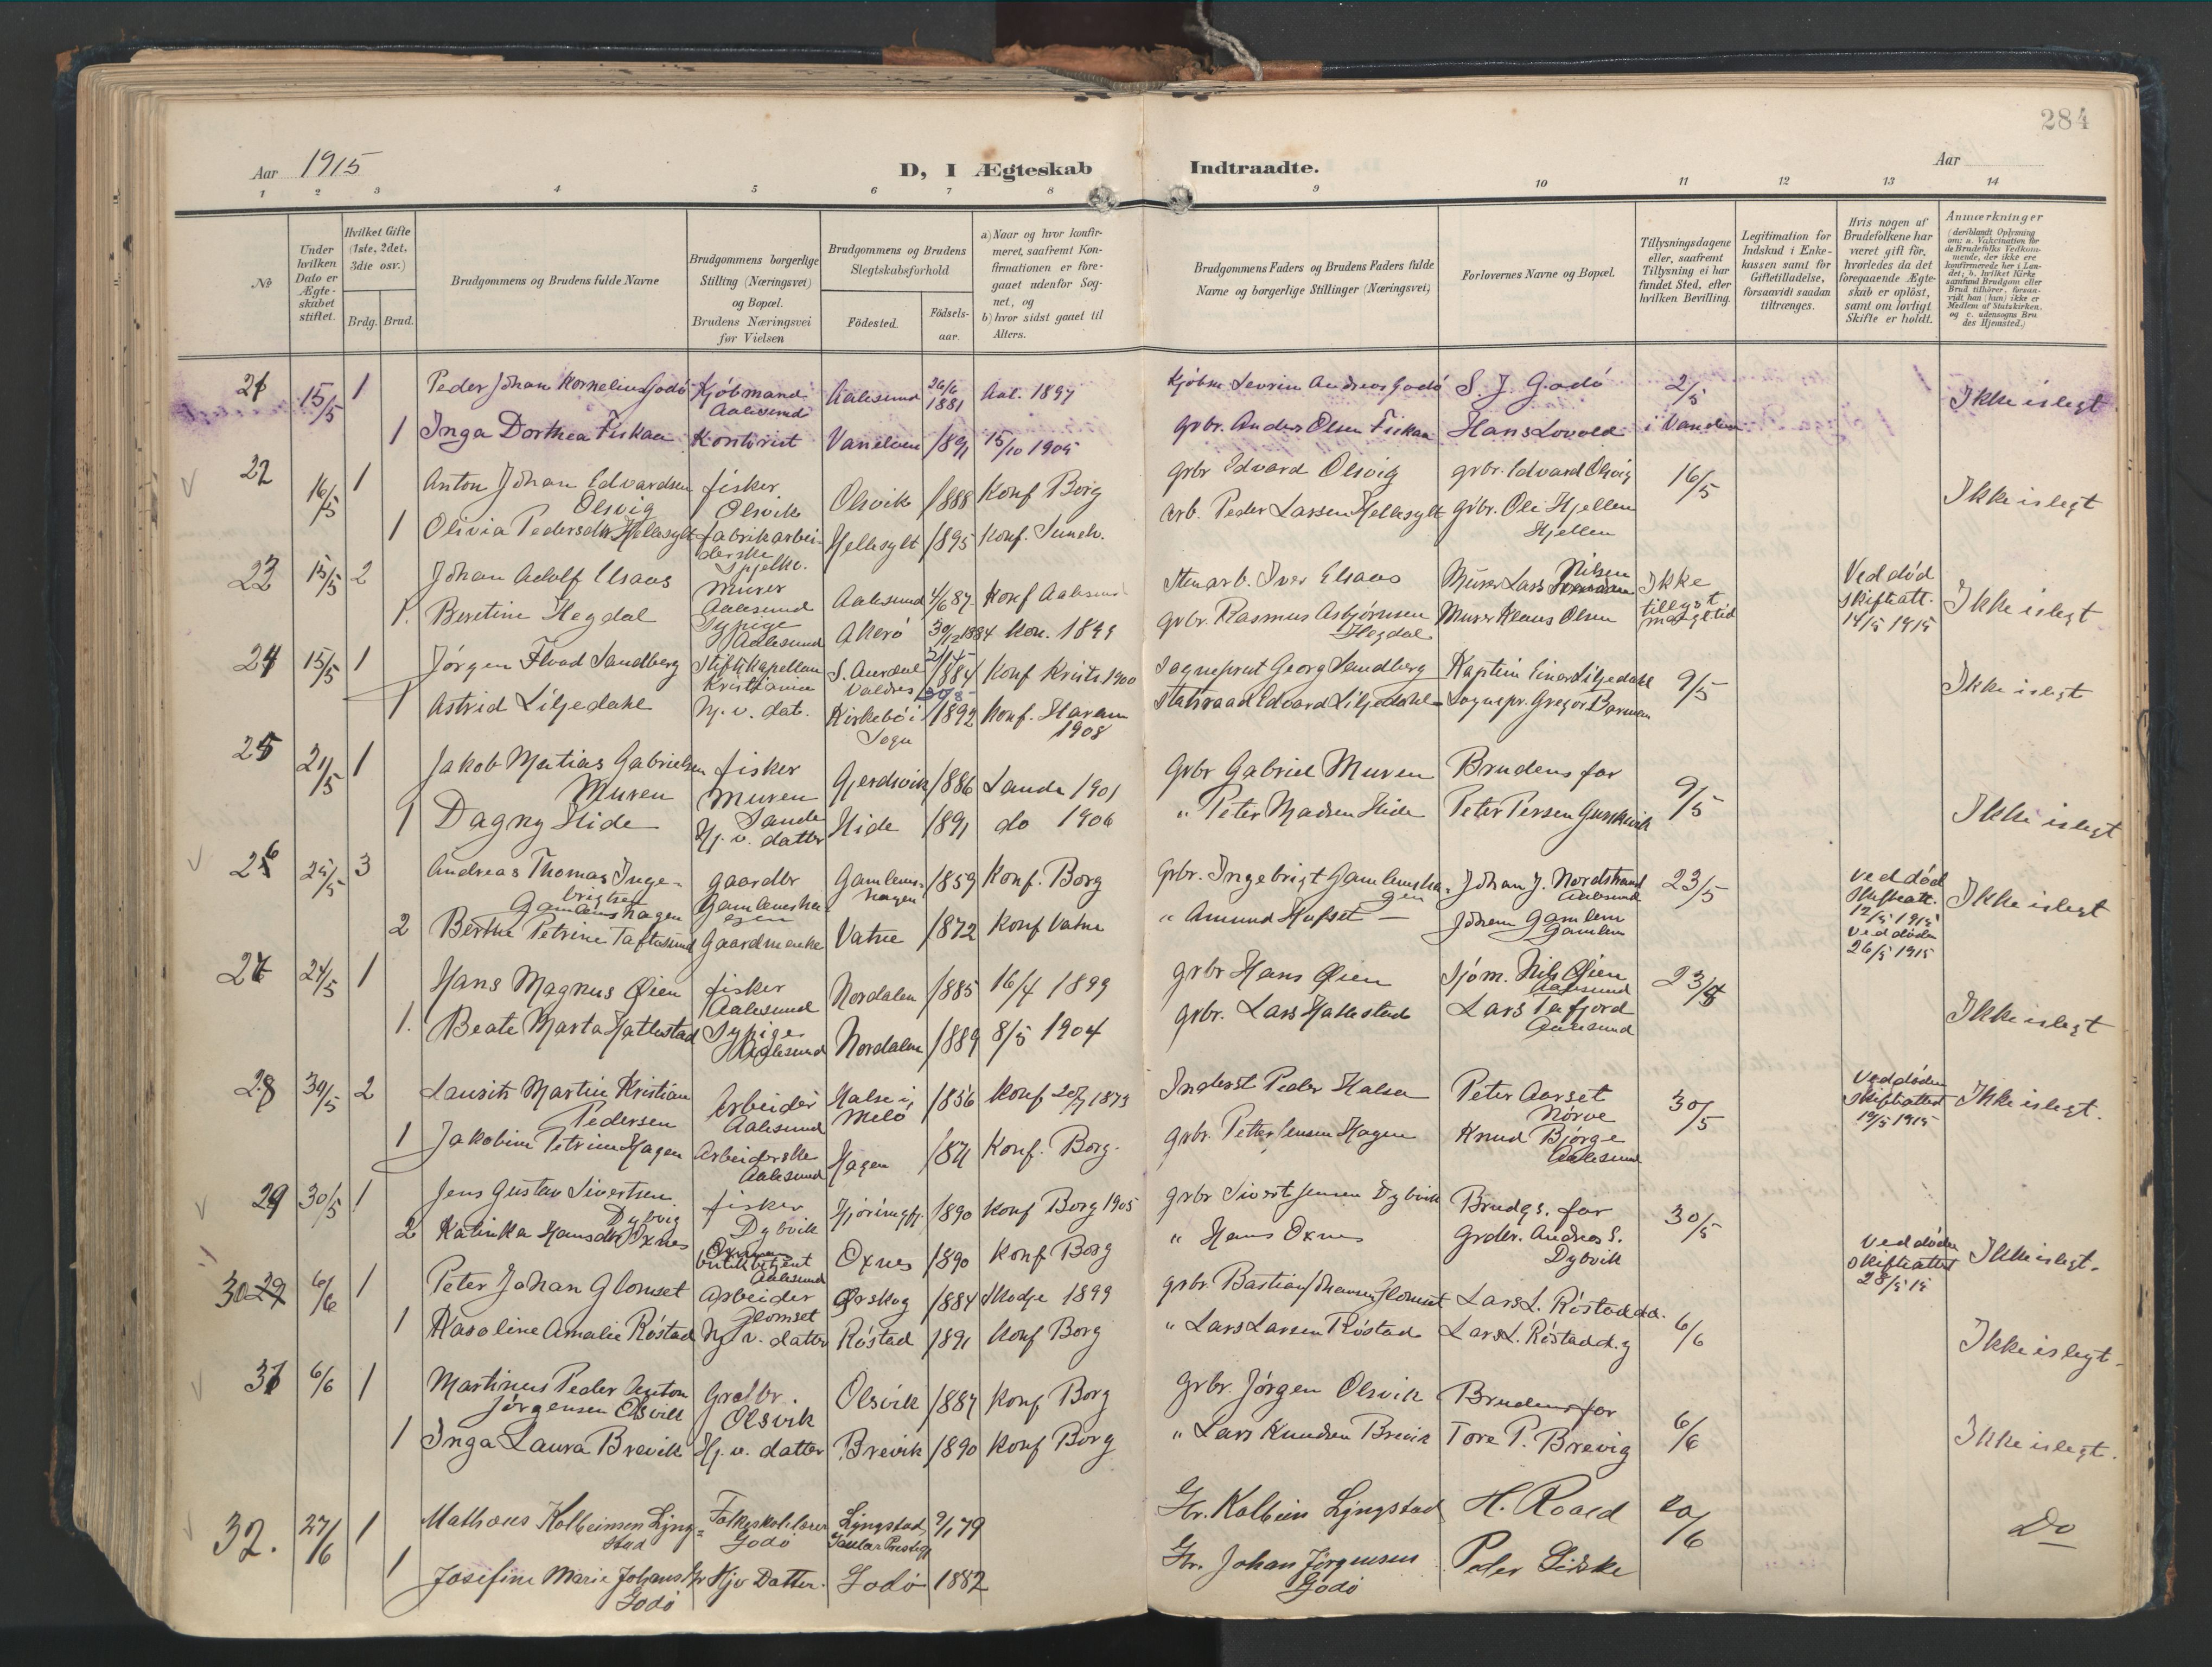 284
Aar 1915
D, I Ægteskab Indtraadte.
Aar
1 2 3 4 5 6 7 8 9 10 11 12 13 14
No
Under hvilken Dato er Ægteskabet stiftet.
Hvilket Gifte (1ste, 2det, 3die osv.)
Brdg. Brud.
Brudgommens og Brudens fulde Navne
Brudgommens borgerlige Stilling (Næringsvei) og Bopæl. Brudens Næringsvei før Vielsen
Brudgommens og Brudens Slegtskabsforhold
Fødested.
Fødselsaar.
a) Naar og hvor konfirmeret, saafremt Konfirmationen er foregaaet udenfor Sognet, og
b) hvor sidst gaaet til Alters.
Brudgommens Faders og Brudens Faders fulde Navne og borgerlige Stillinger (Næringsvei)
Forlovernes Navne og Bopæl.
Tillysningsdagene eller, saafremt Tillysning ei har fundet Sted, efter hvilken Bevilling.
Legitimation for Indskud i Enkekassen samt for Giftetilladelse, forsaavidt saadan tiltrænges.
Hvis nogen af Brudefolkene har været gift før, hvorledes da det foregaaende Ægteskab er opløst, samt om lovligt Skifte er holdt.
Anmærkninger (deriblandt Oplysning om: a. Vakcination for de Brudefolks Vedkommende, der ikke ere konfirmerede her i Landet; b. hvilket Kirkesamfund Brudgom eller Brud tilhører, forsaavidt han (hun) ikke er Medlem af Statskirken, og c. udensogns Brudes Hjemsted.)
21 15/5 1 Peder Johan Kornelius Godø Kjøbmand Aalesund Aalesund 26/6 1881 Aal. 1897 Kjøbm. Levrin Andreas Godø S. J. Godø 2/5 Ikke i slegt
1 Inga Dorthea Fiskaa Kontorist Vanelven 1891 15/10 1905 Grbr. Anders Olsen Fiskaa Hans Lovold i Vanelven
22 16/5 1 Anton Johan Edvardsen Olsvig fisker Olsvik Olsvik 1888 Konf Borg grbr Edvard Olsvig grbr. Edvard Olsvig 16/5 Ikke i slegt
1 Olivia Pedersdtr Hellesylt fabrikarbeiderske Spjelkv. Hellesylt 1895 Konf. Sunelv. arb. Peder Larsen Hellesylt Grbr. Ole Hjellen Hjellen
23 15/5 2 Johan Adolf Elsaas Murer Aalesund Aalesund 4/6 87 Konf Aalesund Stenarb. Iver Elsaas Murer Lars Nilsen Ikke tillyst Ved død skifteatt. 14/5 1915 Ikke i slegt
1. Beretine Hegdal Sypige Aalesund Akerø 30/2 1884 Kon. 1899 grbr. Rasmus Asbjørnsen Hegdal Murer Klaus Olsen
24 15/5 1 Jørgen Flood Sandberg Stiftskapellan Kristiania S. Aurdal Valdres 1884 Konf Kristi. 1900 Sogneprest Georg Sandberg Kaptein Einar Liljedahl 9/5 Ikke i slegt
1 Astrid Liljedahl Hj. v. dat. Kirkebø i Sogn 1892 Konf. Haram 1908 Statsraad Edvard Liljedahl Sognepr. Gregor Barman
25 21/5 1 Jakob Matias Gabrielsen Muren fisker Muren Sande Gjerdsvik 1886 Sande 1901 Grbr Gabriel Muren Brudens far 9/5 Ikke i slegt
1 Dagny Hide Hj. v. datter Hide 1891 do 1906 " Peter Madsen Hide Peter Persen Gurskevik
26 25/5 3 Andreas Thomas Ingebrigtsen Gamlemshagen gaardbr Gamlemshagen Gamlemshagen 1859 Konf. Borg Grbr. Ingebrigt Gamlemshagen Johan J. Nordstrand Aalesund 23/5 Ved død Skifteatt. 12/5 1915 Ikke i slegt
2 Berthe Petrine Taftesund Gaardmenke Vatne 1872 Konf Vatne " Amund Hafset Johan Gamlem Gamlem Ved døden 26/5 1915
27 24/5 1 Hans Magnus Øien fisker Aalesund Nordalen 1885 16/4 1899 grbr Hans Øien Sjøm. Nils Øien Aalesund 23/5 Ikke i slegt
1. Beate Marta Hattestad Sypige Aalesund Nordalen 1889 8/5 1904 grbr. Lars Hallestad Lars Tafjord Aalesund
28 30/5 2 Lausits Martin Kristian Pedersen Arbeider Aalesund Halse i Melø 1856 Konf 20/7 1873 Inderst Peder Halsa Peter Aarset Nørve 30/5 Ved døden Skifteattest 19/5 1915 Ikke i slegt.
1 Jakobine Petrine Hagen Arbeiderske Aalesund Hagen 1871 Konf. Borg. grbr. Petter Jensen Hagen Knud Bjørge Aalesund
29 30/5 1 Jens Gustav Sivertsen Dybvig fisker Dybvik Hjørungfj. 1890 Konf Borg 1905 grbr Sivert Jensen Dybvik Brudgs. far 30/5
2 Katinka Hansdtr Oxnes butikbetjent Aalesund Oxnes 1890 Konf Borg " Hans Oxnes Grdbr. Andreas S. Dybvik Ved døden skifteattest 28/5 15 Ikke i slegt.
30 6/6 1 Peter Johan Glomset Arbeider Glomset Ørskog 1884 Skodje 1899 grbr. Bastian Johansen Glomset Lars L. Røstad d.æ. 6/6 Ikke i slegt.
1 Hasaline Amalie Røstad Hj. v. datter Røstad 1891 Konf Borg " Lars Larsen Røstad Lars L. Røstad d.y
31 6/6 1 Martinus Peder Anton Jørgensen Olsvik Grdbr. Olsvik Olsvik 1887 Konf Borg grbr. Jørgen Olsvik Brudens far 6/6 Ikke i slegt.
1 Inga Laura Brevik Hj. v. datter Brevik 1890 Konf Borg " Lars Knudsen Brevik Tore P. Brevig
32. 27/6 1 Mathæus Kolbeinsen Ljngstad Folkeskolelærer Godø Ljngstad 9/1 79 Gr. Kolbein Ljngstad H. Roald 20/6 Do
1 Josefine Marie Johansdtr Godø Hjv Datter. Godø 1882 Gr. Johan Jørgensen Godø Peder Giske